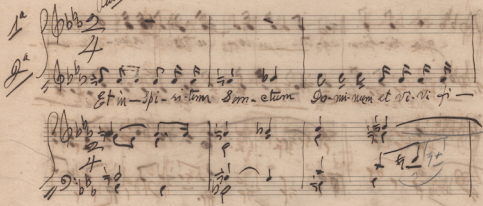 1ª
2ª
Et in Spi-ri-tum San-ctum Do-mi-num et vi-vi-fi-